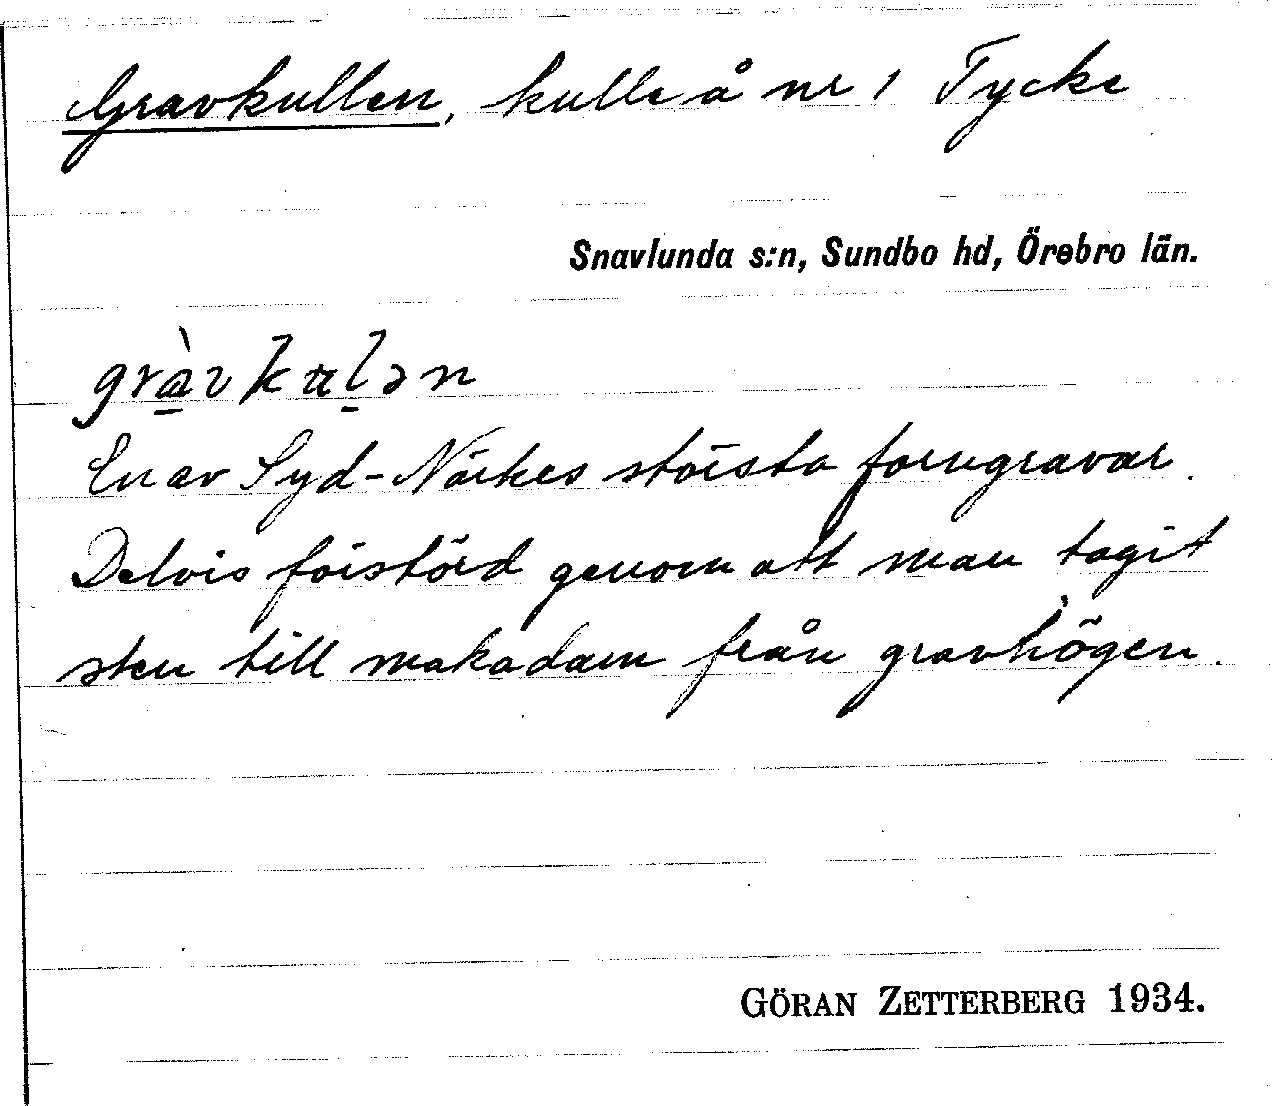 Gravkullen, kulle å nr 1 Tycke
Snavlunda s:n, Sundbo hd, Örebro län.
grà̱vkɯḻən
En av Syd-Närkes största forngravar.
Delvis förstörd genom att man tagit
sten till makadam från gravhögen.
GÖRAN ZETTERBERG 1934.